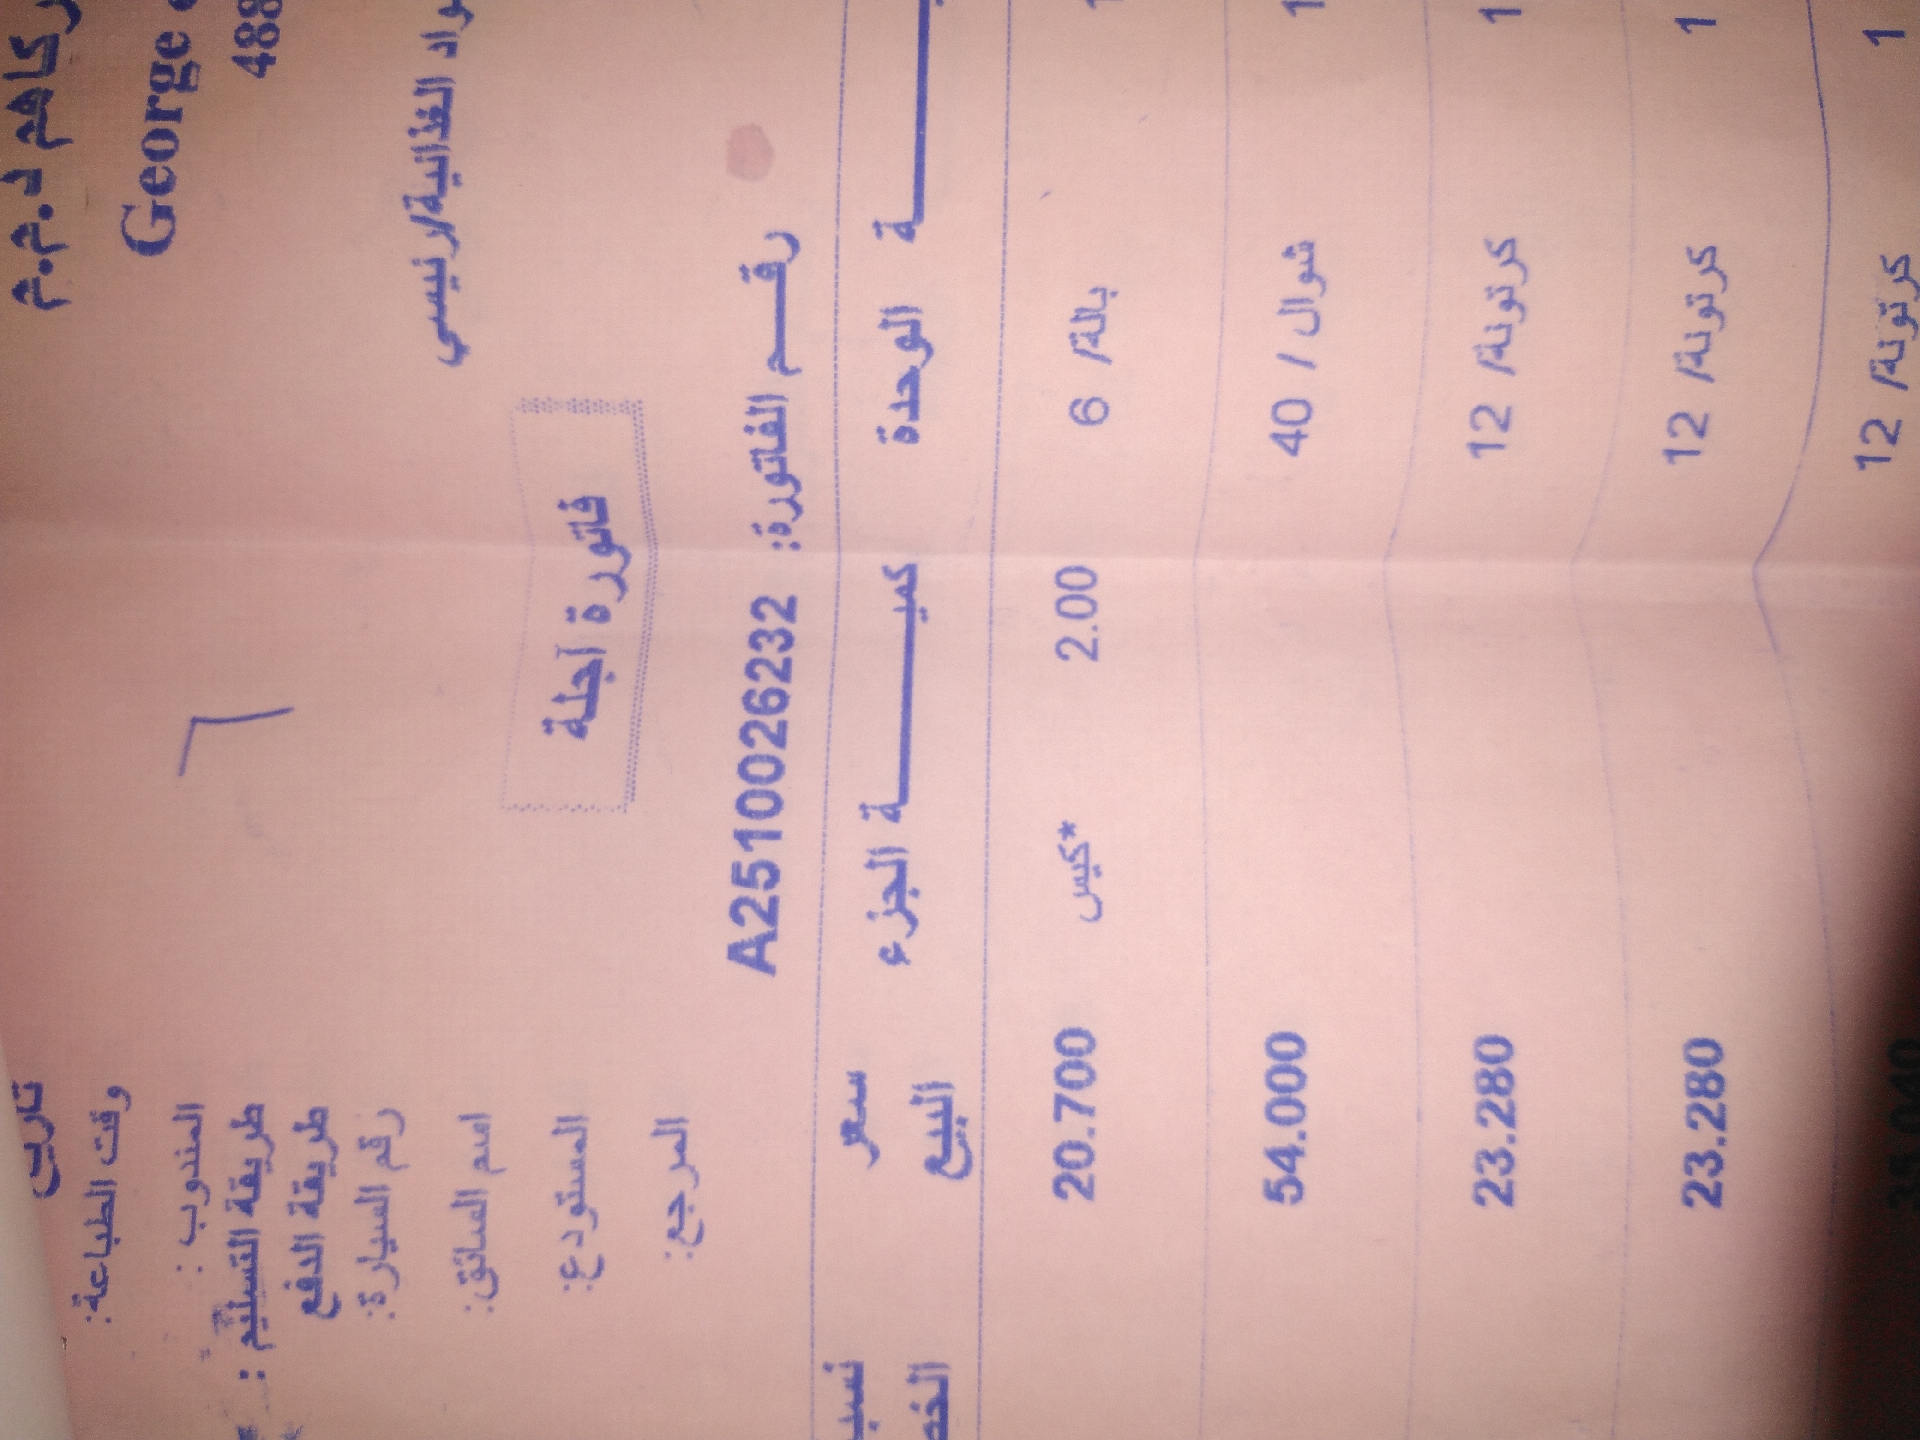 ركاهم ذ.م.م
George
488
المواد الغذائية/رئيسي
وقت الطباعة:
المندوب :
طريقة التسليم :
طريقة الدفع
رقم السيارة:
اسم السائق:
المستودع:
المرجع:
فاتورة آجلة
رقم الفاتورة: A2510026232
الوحدة كمية الجزء سعر البيع
1 بالة/ 6 2.00 *كيس 20.700
1 شوال / 40 54.000
1 كرتونة/ 12 23.280
1 كرتونة/ 12 23.280
1 كرتونة/ 12